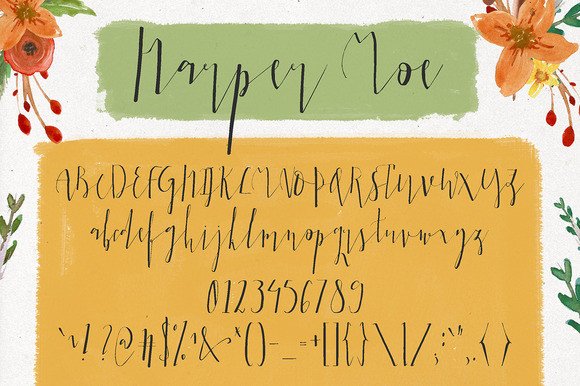 Harper Moe
ABCDEFGHIJKLMNOPQRSTUVWXYZ
abcdefghijklmnopqrstuvwxyz
0123456789
`~!?@#$%^&*()-_=+[]{}\|/:;"',.<>